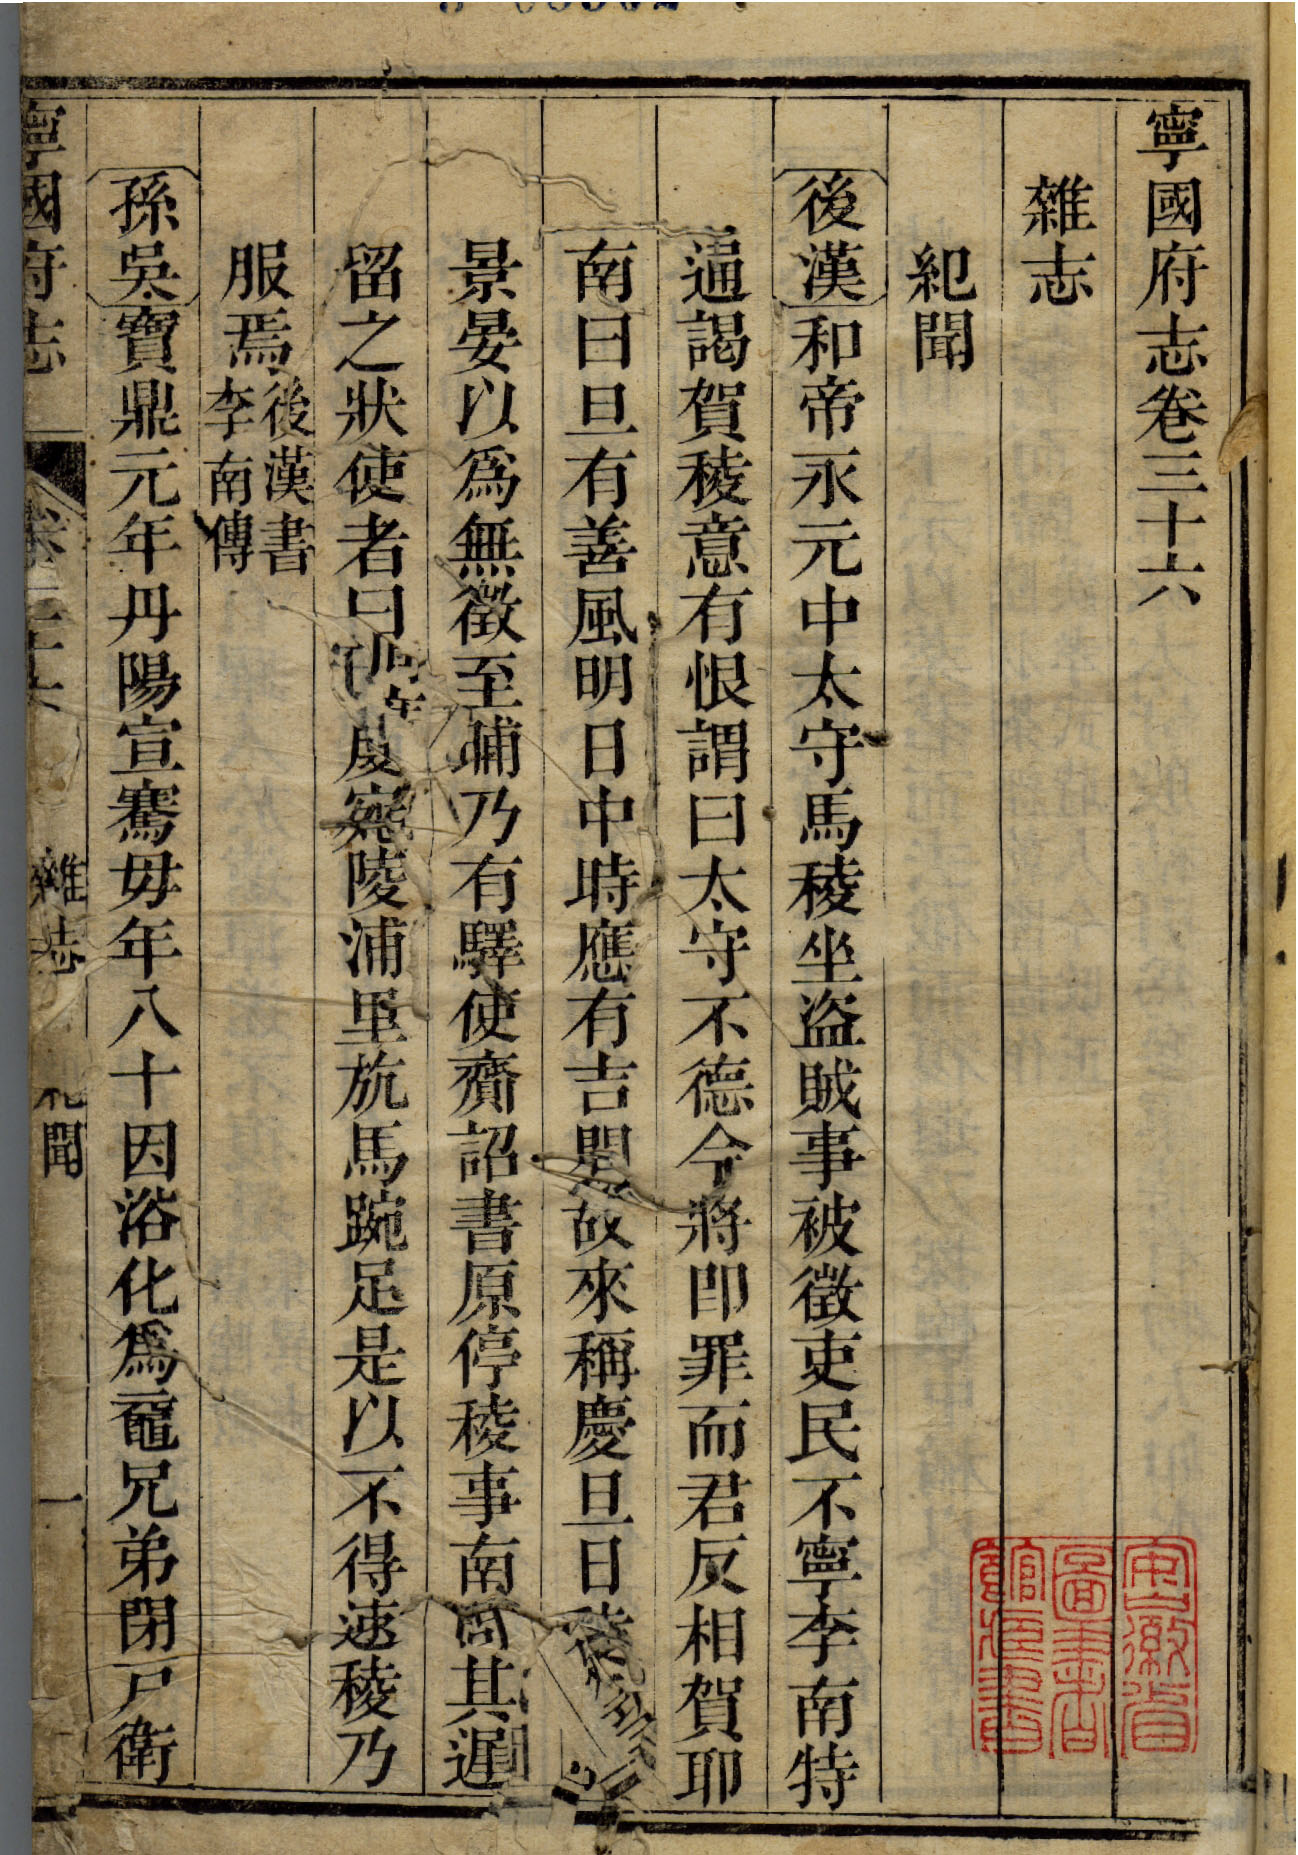 寧國府志卷三十六
雜志
紀聞
後漢和帝永元中太守馬稜坐盜賊事被徵吏民不寧李南特
通謁賀稜意有恨謂曰太守不德今將即罪而君反相賀耶
南曰旦有善風明日中時應有吉問故來稱慶旦日稜
景晏以爲無徵至晡乃有驛使齎詔書原停稜事南問其遲
留之狀使者曰向度宛陵浦里䟘馬踠足是以不得速稜乃
服焉後漢書李南傳
孫吳寶鼎元年丹陽宣騫毋年八十因浴化爲黿兄弟閉戸衛
寧國府志
卷三十六
雜志
紀聞
一
安徽省
圖書館
藏書